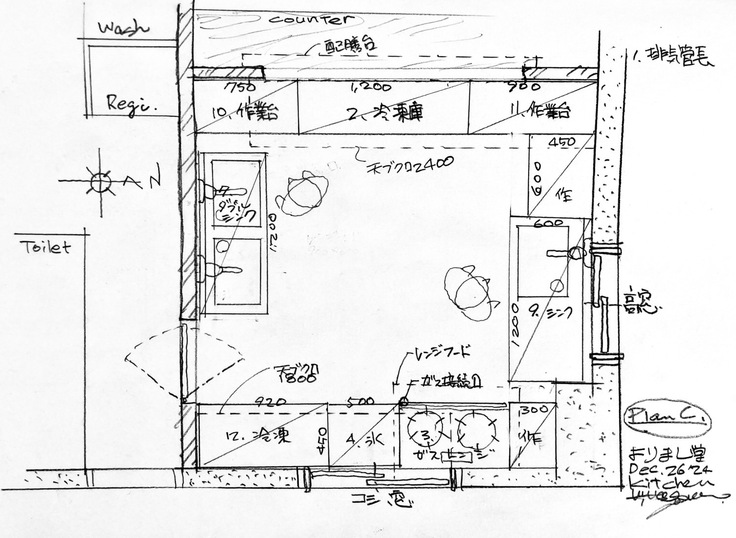 counter
Wash
配膳台
1. 排気管長
750
1,200
900
Regi.
10. 作業台
2. 冷凍庫
11. 作業台
450
天ブクロ2400
600
作
N
7.
ダブル
シンク
1200
600
Toilet
9. シンク
1200
高窓
レンジフード
天ブクロ
1800
ガス接続口
920
500
300
Plan C.
12. 冷凍
450
4. 氷
3.
ガスレンジ
作
Dec. 26 '24
Kitchen
コシ窓